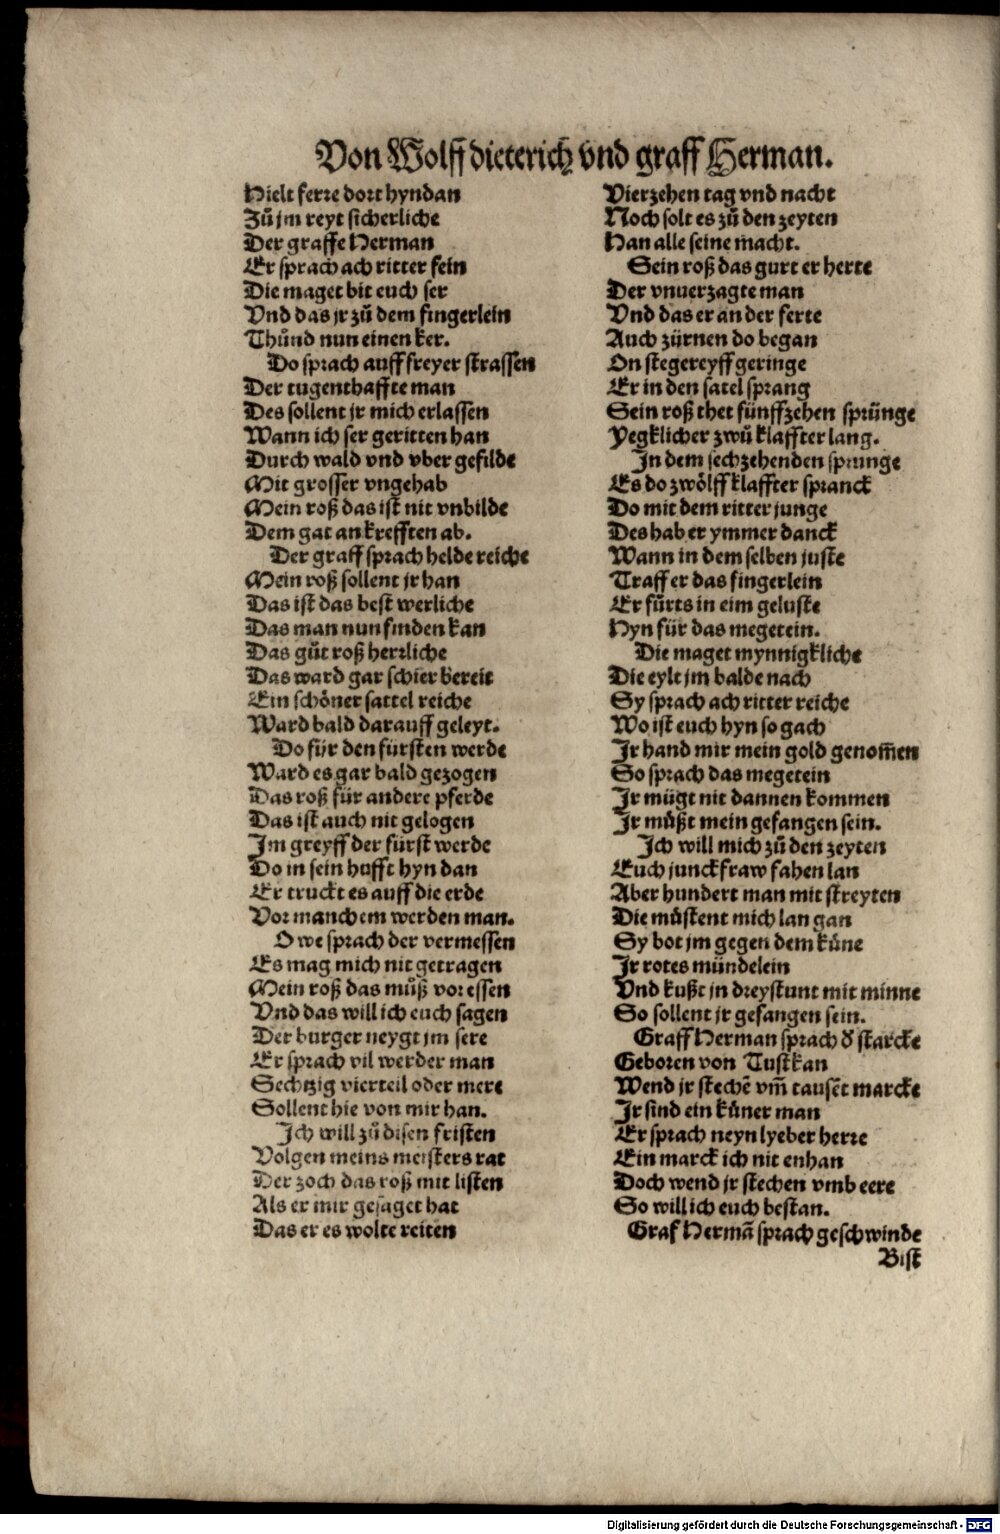 Von Wolff dieterich vnd graff Herman.
Hielt ferre dort hyndan
Zů jm reyt sicherliche
Der graffe Herman
Er sprach ach ritter fein
Die maget bit euch ser
Vnd das jr zů dem fingerlein
Thůnd nun einen ker.
Do sprach auff freyer strassen
Der tugenthaffte man
Des sollent jr mich erlassen
Wann ich ser geritten han
Durch wald vnd vber gefilde
Mit grosser vngehab
Mein roß das ist nit vnbilde
Dem gat an krefften ab.
Der graff sprach helde reiche
Mein roß sollent jr han
Das ist das best werliche
Das man nun finden kan
Das gůt roß herrliche
Das ward gar schier bereit
Ein schöner sattel reiche
Ward bald darauff geleyt.
Do für den fürsten werde
Ward es gar bald gezogen
Das roß für andere pferde
Das ist auch nit gelogen
Im greyff der fürst werde
Do in sein hufft hyn dan
Er truckt es auff die erde
Vor manchem werden man.
O we sprach der vermessen
Es mag mich nit getragen
Mein roß das můß vor essen
Vnd das will ich euch sagen
Der burger neygt jm sere
Er sprach vil werder man
Sechtzig vierteil oder mere
Sollent hie von mir han.
Ich will zů disen fristen
Volgen meins meisters rat
Der zoch das roß mit listen
Als er mir gesaget hat
Das er es wolte reiten
Vierzehen tag vnd nacht
Noch solt es zů den zeyten
Han alle seine macht.
Sein roß das gurt er herte
Der vnuerzagte man
Vnd das er an der ferte
Auch zürnen do began
On stegereyff geringe
Er in den satel sprang
Sein roß thet fünffzehen sprünge
Yegklicher zwů klaffter lang.
In dem sechzehenden sprunge
Es do zwölff klaffter spranck
Do mit dem ritter junge
Des hab er ymmer danck
Wann in dem selben juste
Traff er das fingerlein
Er fůrts in eim geluste
Hyn für das megetein.
Die maget mynnigkliche
Die eylt jm balde nach
Sy sprach ach ritter reiche
Wo ist euch hyn so gach
Ir hand mir mein gold genom̃en
So sprach das megetein
Ir mügt nit dannen kommen
Ir müßt mein gefangen sein.
Ich will mich zů den zeyten
Euch junckfraw fahen lan
Aber hundert man mit streyten
Die můstent mich lan gan
Sy bot jm gegen dem küne
Ir rotes mündelein
Vnd kußt jn dreystunt mit minne
So sollent jr gefangen sein.
Graff Herman sprach d̕ starcke
Geboren von Tustkan
Wend jr stechē vm̃ tausēt marcke
Ir sind ein küner man
Er sprach neyn lyeber herre
Ein marck ich nit enhan
Doch wend jr stechen vmb eere
So will ich euch bestan.
Graf Hermā sprach geschwinde
Bist
Digitalisierung gefördert durch die Deutsche Forschungsgemeinschaft - DFG